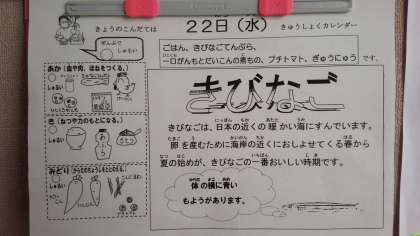 きょうのこんだては
22日(水)
きゅうしょくカレンダー
ぜんぶで
しゅるい
ごはん、きびなごてんぷら、
一口がんもとだいこんの煮もの、プチトマト、ぎゅうにゅう です。
あか(血や肉、ほねをつくる。)
しゅるい
きびなご
きびなごは、日本の近くの 暖 かい海にすんでいます。
卵 を産むために海岸の近くにおしよせてくる春から
夏の始めが、きびなごの一番おいしい時期です。
き(ねつや力のもとになる。)
しゅるい
みどり
しゅるい
体 の横に青い
もようがあります。